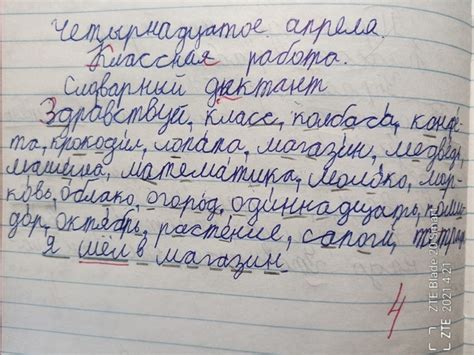 Четырнадцатое апреля.
Классная работа.
Словарний диктант
Здравствуй, класс, колбаса, конфе-
та, крокодил, лопата, магазин, медведь
машина, математика, молоко, мор-
ковь, облако, огород, одиннадцать, поми-
дор, октябрь, растение, сапоги, тетрадь
Я шёл в магазин.
4
ZTE Blade 20 Smart
ZTE 2021.4.21